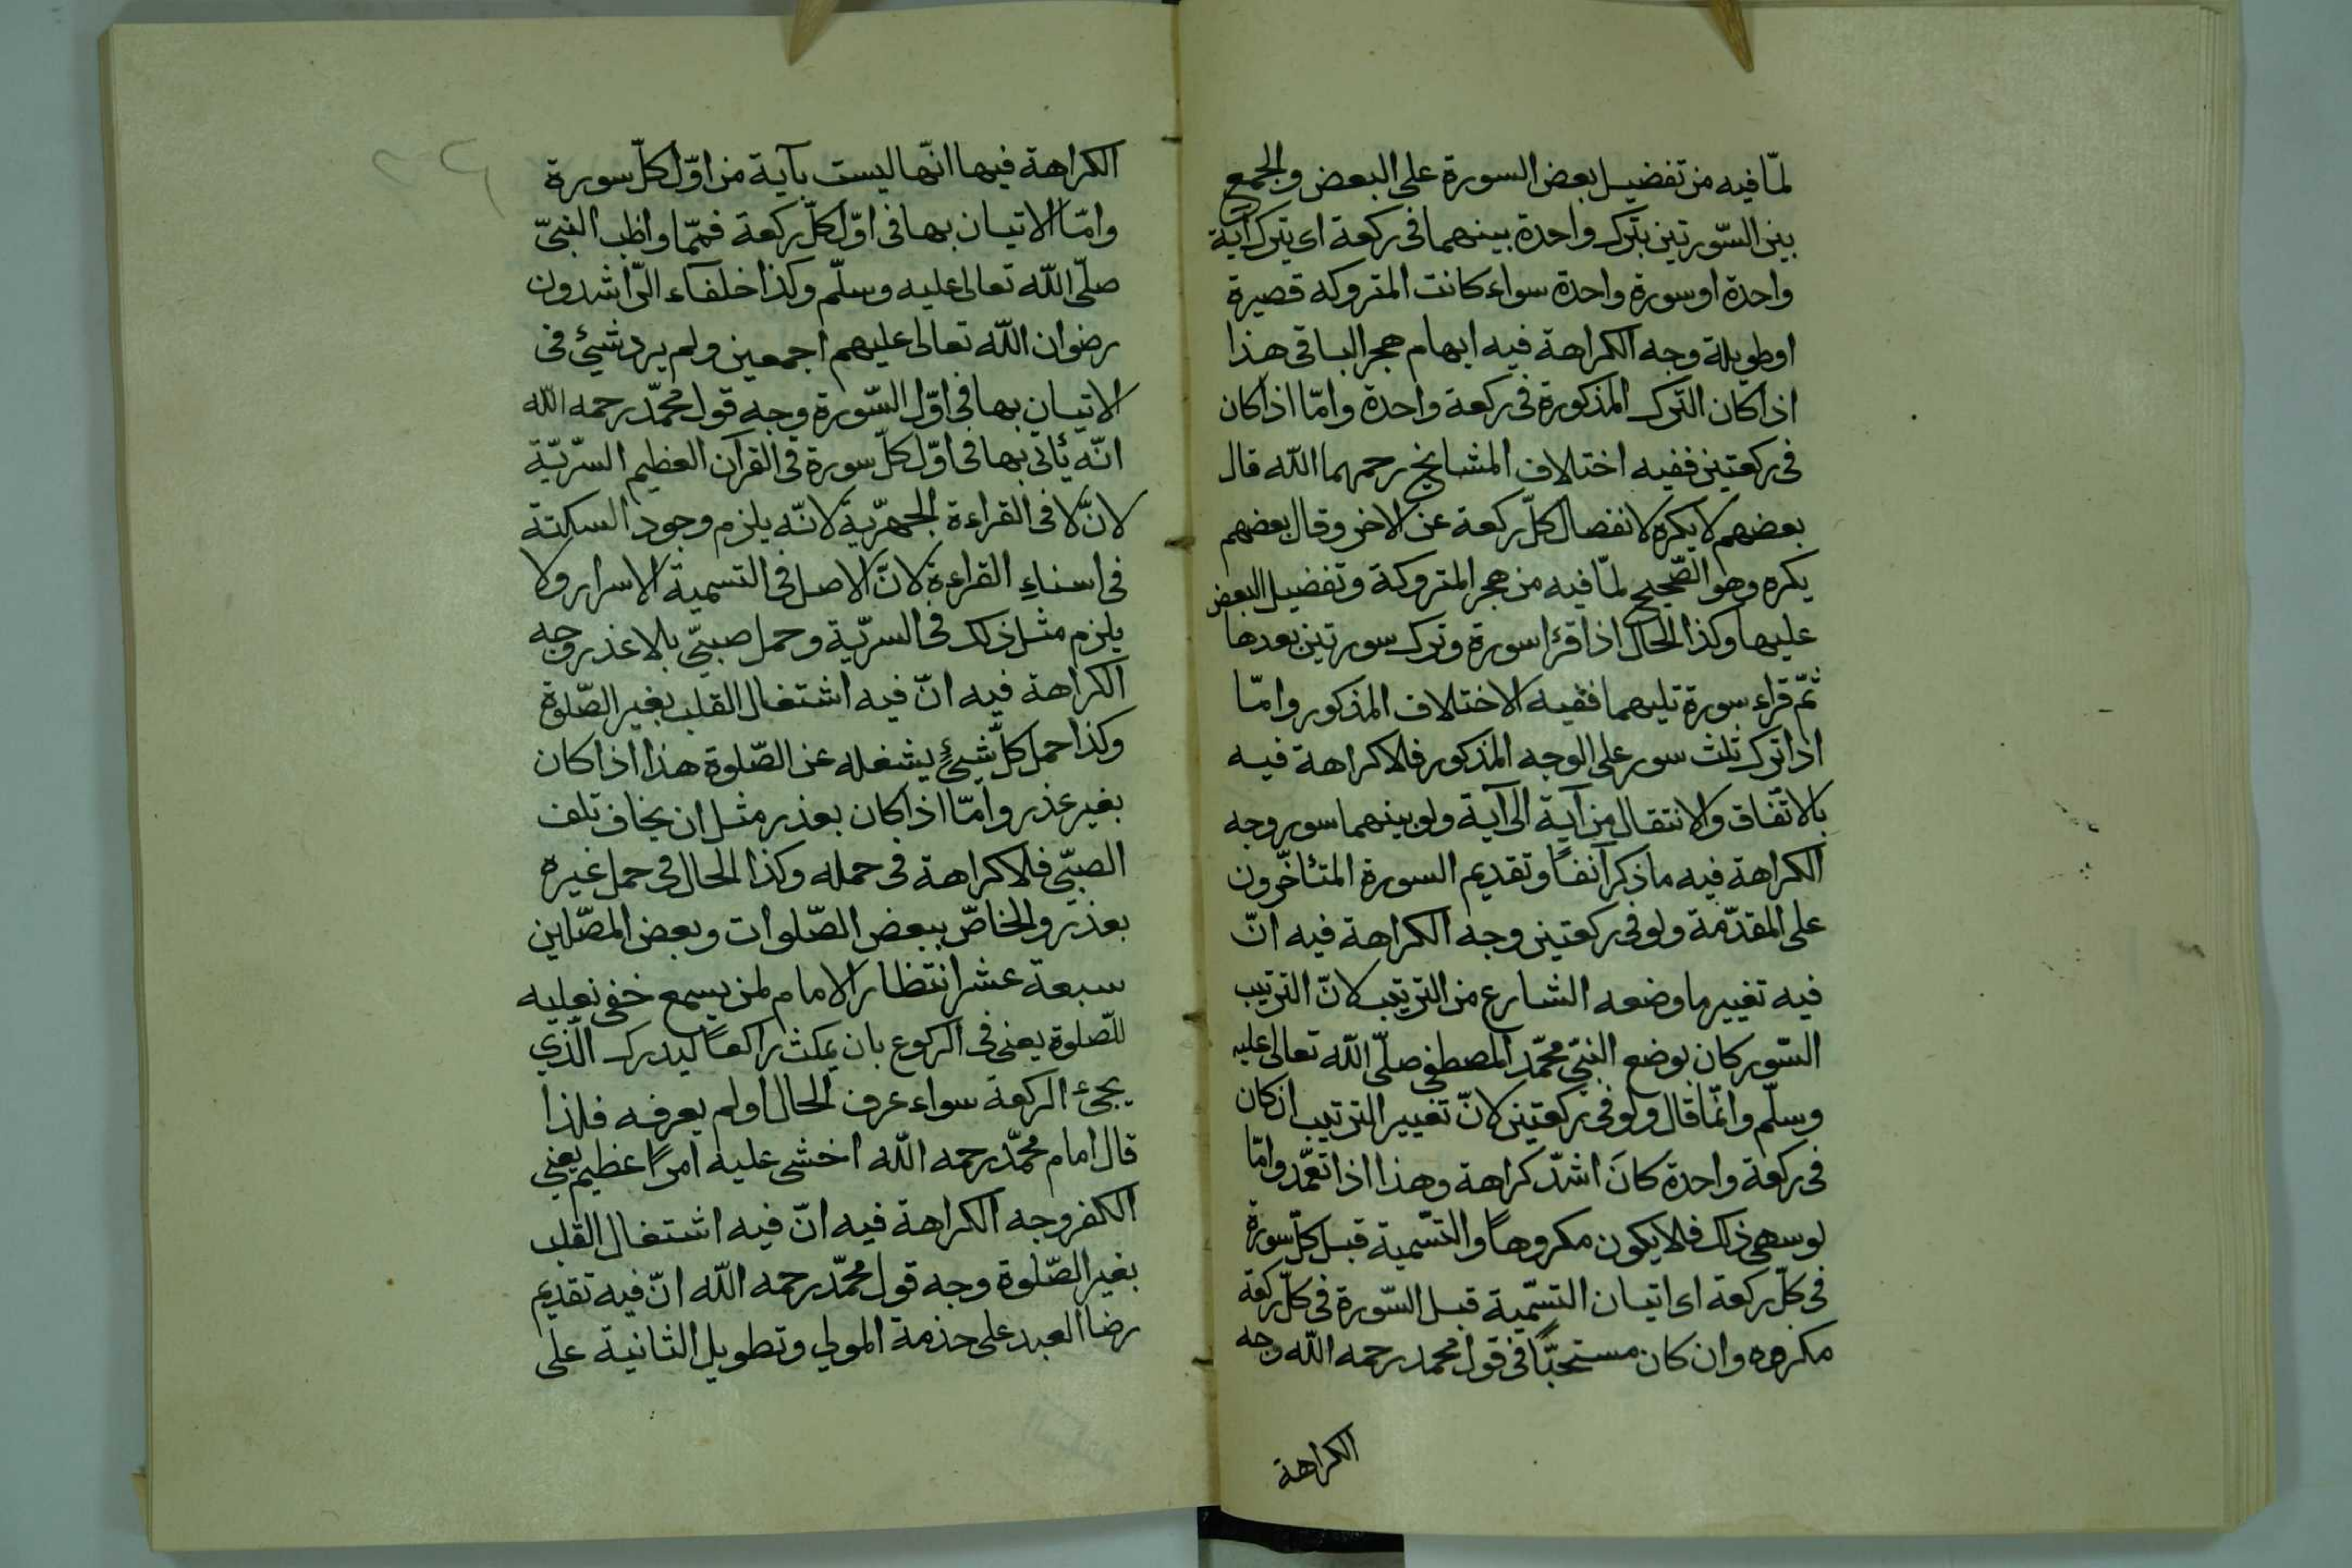 لمّا فيه من تفضيل بعض السورة على البعض والجمع
بين السّورتين بترك واحدة بينهما فى ركعة اى يترك آية
واحدة او سورة واحدة سواء كانت المتروكه قصيرة
او طويلة وجه الكراهة فيه ايهام هجر الباقى هذا
اذا كان التّرك المذكورة فى ركعة واحدة وامّا اذا كان
فى ركعتين ففيه اختلاف المشايخ رحمهما اللّه قال
بعضهم لا يكره لانفصال كلّ ركعة عن الاخر وقال بعضهم
يكره وهو الصّحيح لمّا فيه من هجر المتروكة وتفضيل البعض
عليها وكذا الحال اذا قرا سورة وترك سورتين بعدها
ثمّ قراء سورة تليهما ففيه الاختلاف المذكور وامّا
اذا ترك ثلث سور على الوجه المذكور فلا كراهة فيه
بالاتّفاق والانتقال من آية الى آية ولو بينهما سور وجه
الكراهة فيه ما ذكر آنفًا وتقديم السورة المتئاخّرون
على المقدّمة ولو فى ركعتين وجه الكراهة فيه انّ
فيه تغيير ما وضعه الشارع من الترتيب لانّ الترتيب
السّور كان بوضع النبىّ محمّد المصطفى صلّى اللّه تعالى عليه
وسلّم وانّما قال ولو فى ركعتين لانّ تغيير الترتيب ان كان
فى ركعة واحدة كانَ اشدّ كراهة وهذا اذا تعمّد وامّا
لو سهى ذلك فلا يكون مكروهًا والتسّمية قبل كلّ سورة
فى كلّ ركعة اى اتيان التسّمية قبل السّورة فى كلّ ركعة
مكروه وان كان مستحبّاً فى قول محمد رحمه اللّه وجه
الكراهة
الكراهة فيها انّها ليست بآية من اوّل كلّ سورة
وامّا الاتيان بها فى اوّل كلّ ركعة فممّا واظب النبىّ
صلّى اللّه تعالى عليه وسلّم وكذا خلفاء الرّاشدون
رضوان اللّه تعالى عليهم اجمعين ولم يرد شيئ فى
الاتيان بها فى اوّل السّورة وجه قول محمّد رحمه اللّه
انّه ئاتى بها فى اوّل كلّ سورة فى القرآن العظيم السّرّيّة
لانّ لا فى القراءة الجهريّة لانّه يلزم وجود السكتة
فى اسناءِ القراءة لانّ الاصل فى التسمية الاسرار ولا
يلزم مثل ذلك فى السرّية وحمل صبىّ بلا عذر وجه
الكراهة فيه انّ فيه اشتغال القلب بغير الصّلوة
وكذا حمل كلّ شيئٍ يشغله عن الصّلوة هذا اذا كان
بغير عذر وامّا اذا كان بعذر مثل ان يخاف تلف
الصبّى فلا كراهة فى حمله وكذا الحال فى حمل غيره
بعذر والخاصّ ببعض الصّلوات وبعض المصّلين
سبعة عشر انتظار الامام لمن يسمع خفى نعليه
للصّلوة يعنى فى الركوع بان يمكث راكعاً ليدرك الّذي
يجىء الركعة سواء عرف الحال او لم يعرفه فلذا
قال امام محمّد رحمه اللّه اخشى عليه امرًا عظيم يعنى
الكفر وجه الكراهة فيه انّ فيه اشتغال القلب
بغير الصّلوة وجه قول محمّد رحمه اللّه انّ فيه تقديم
رضا العبد على حذمة المولي وتطويل الثانية على